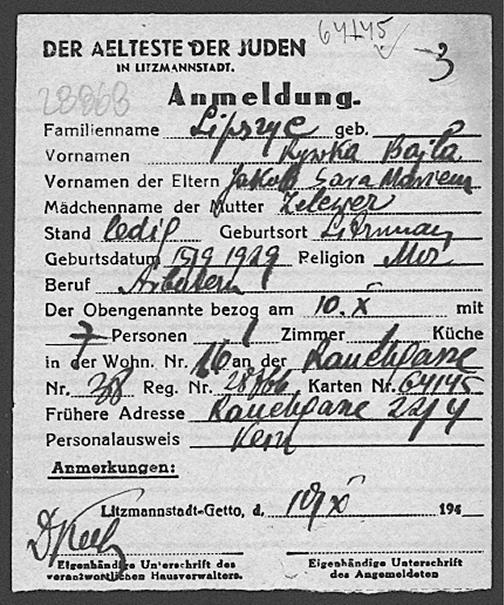 64145
3
DER AELTESTE DER JUDEN
IN LITZMANNSTADT.
28868
Anmeldung.
Familienname Lipszyc geb.
Vornamen Rywka Bajla
Vornamen der Eltern Jakob Sara Mariem
Mädchenname der Mutter Zelewer
Stand ledig Geburtsort Litzmann
Geburtsdatum 15/9 1929 Religion Mos
Beruf Arbeiterin
Der Obengenannte bezog am 10. X mit
7 Personen 1 Zimmer 1 Küche
in der Wohn. Nr. 16 an der Rauchgasse
Nr. 38 Reg. Nr. Karten Nr. 64145
Frühere Adresse Rauchgasse
Personalausweis Kein
Anmerkungen:
Litzmannstadt-Getto, d. X 194
Eigenhändige Unterschrift des verantwortlichen Hausverwalters.
Eigenhändige Unterschrift des Angemeldeten